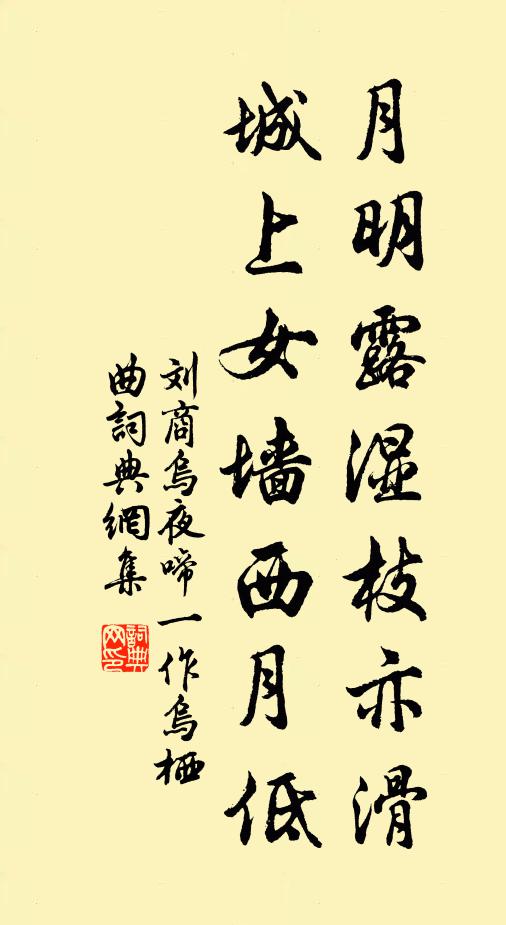 月明露湿枝亦滑
城上女墙西月低
刘商乌夜啼一作乌栖
曲詞典網集
詞典
网印